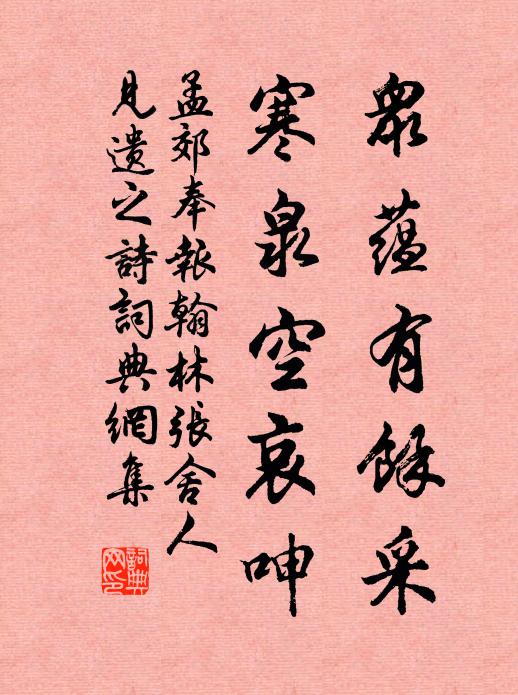 眾蘊有餘采
寒泉空哀呻
孟郊奉報翰林張舍人
見遺之詩詞典網集
詞典網印